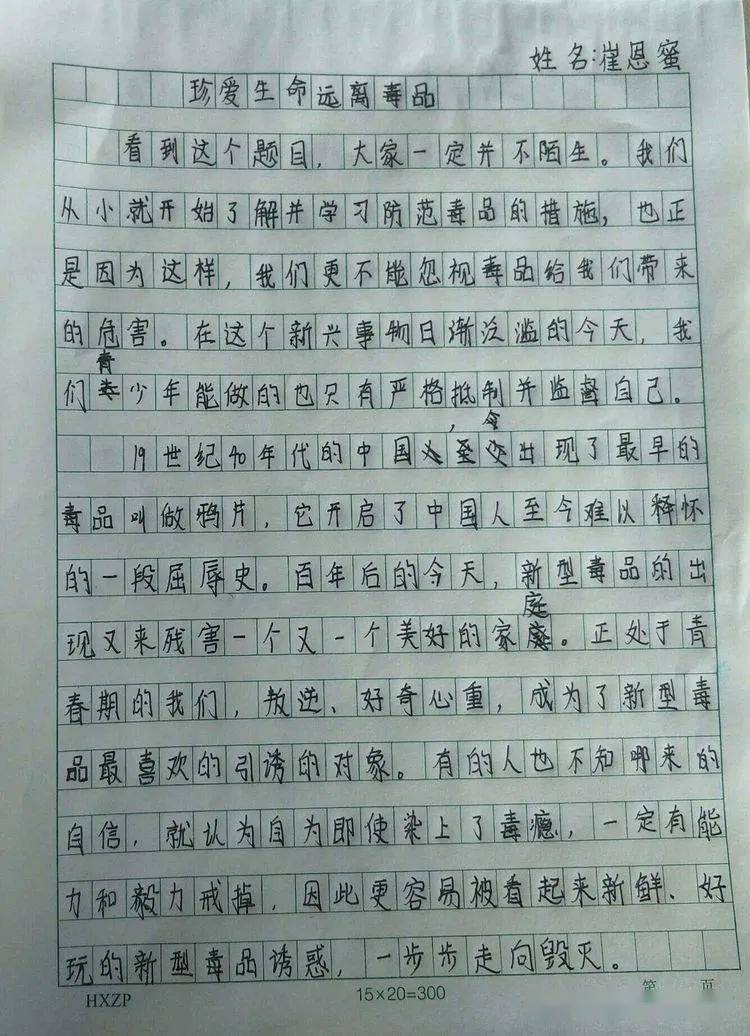 姓名:崔恩蜜
珍爱生命远离毒品
看到这个题目，大家一定并不陌生。我们
从小就开始了解并学习防范毒品的措施，也正
是因为这样，我们更不能忽视毒品给我们带来
的危害。在这个新兴事物日渐泛滥的今天，我
们青少年能做的也只有严格抵制并监督自己。
19世纪40年代的中国，令出现了最早的
毒品叫做鸦片，它开启了中国人至今难以释怀
的一段屈辱史。百年后的今天，新型毒品的出
现又来残害一个又一个美好的家庭。正处于青
春期的我们，叛逆、好奇心重，成为了新型毒
品最喜欢的引诱的对象。有的人也不知哪来的
自信，就认为自为即使染上了毒瘾，一定有能
力和毅力戒掉，因此更容易被看起来新鲜、好
玩的新型毒品诱惑，一步步走向毁灭。
HXZP
15×20=300
第 页